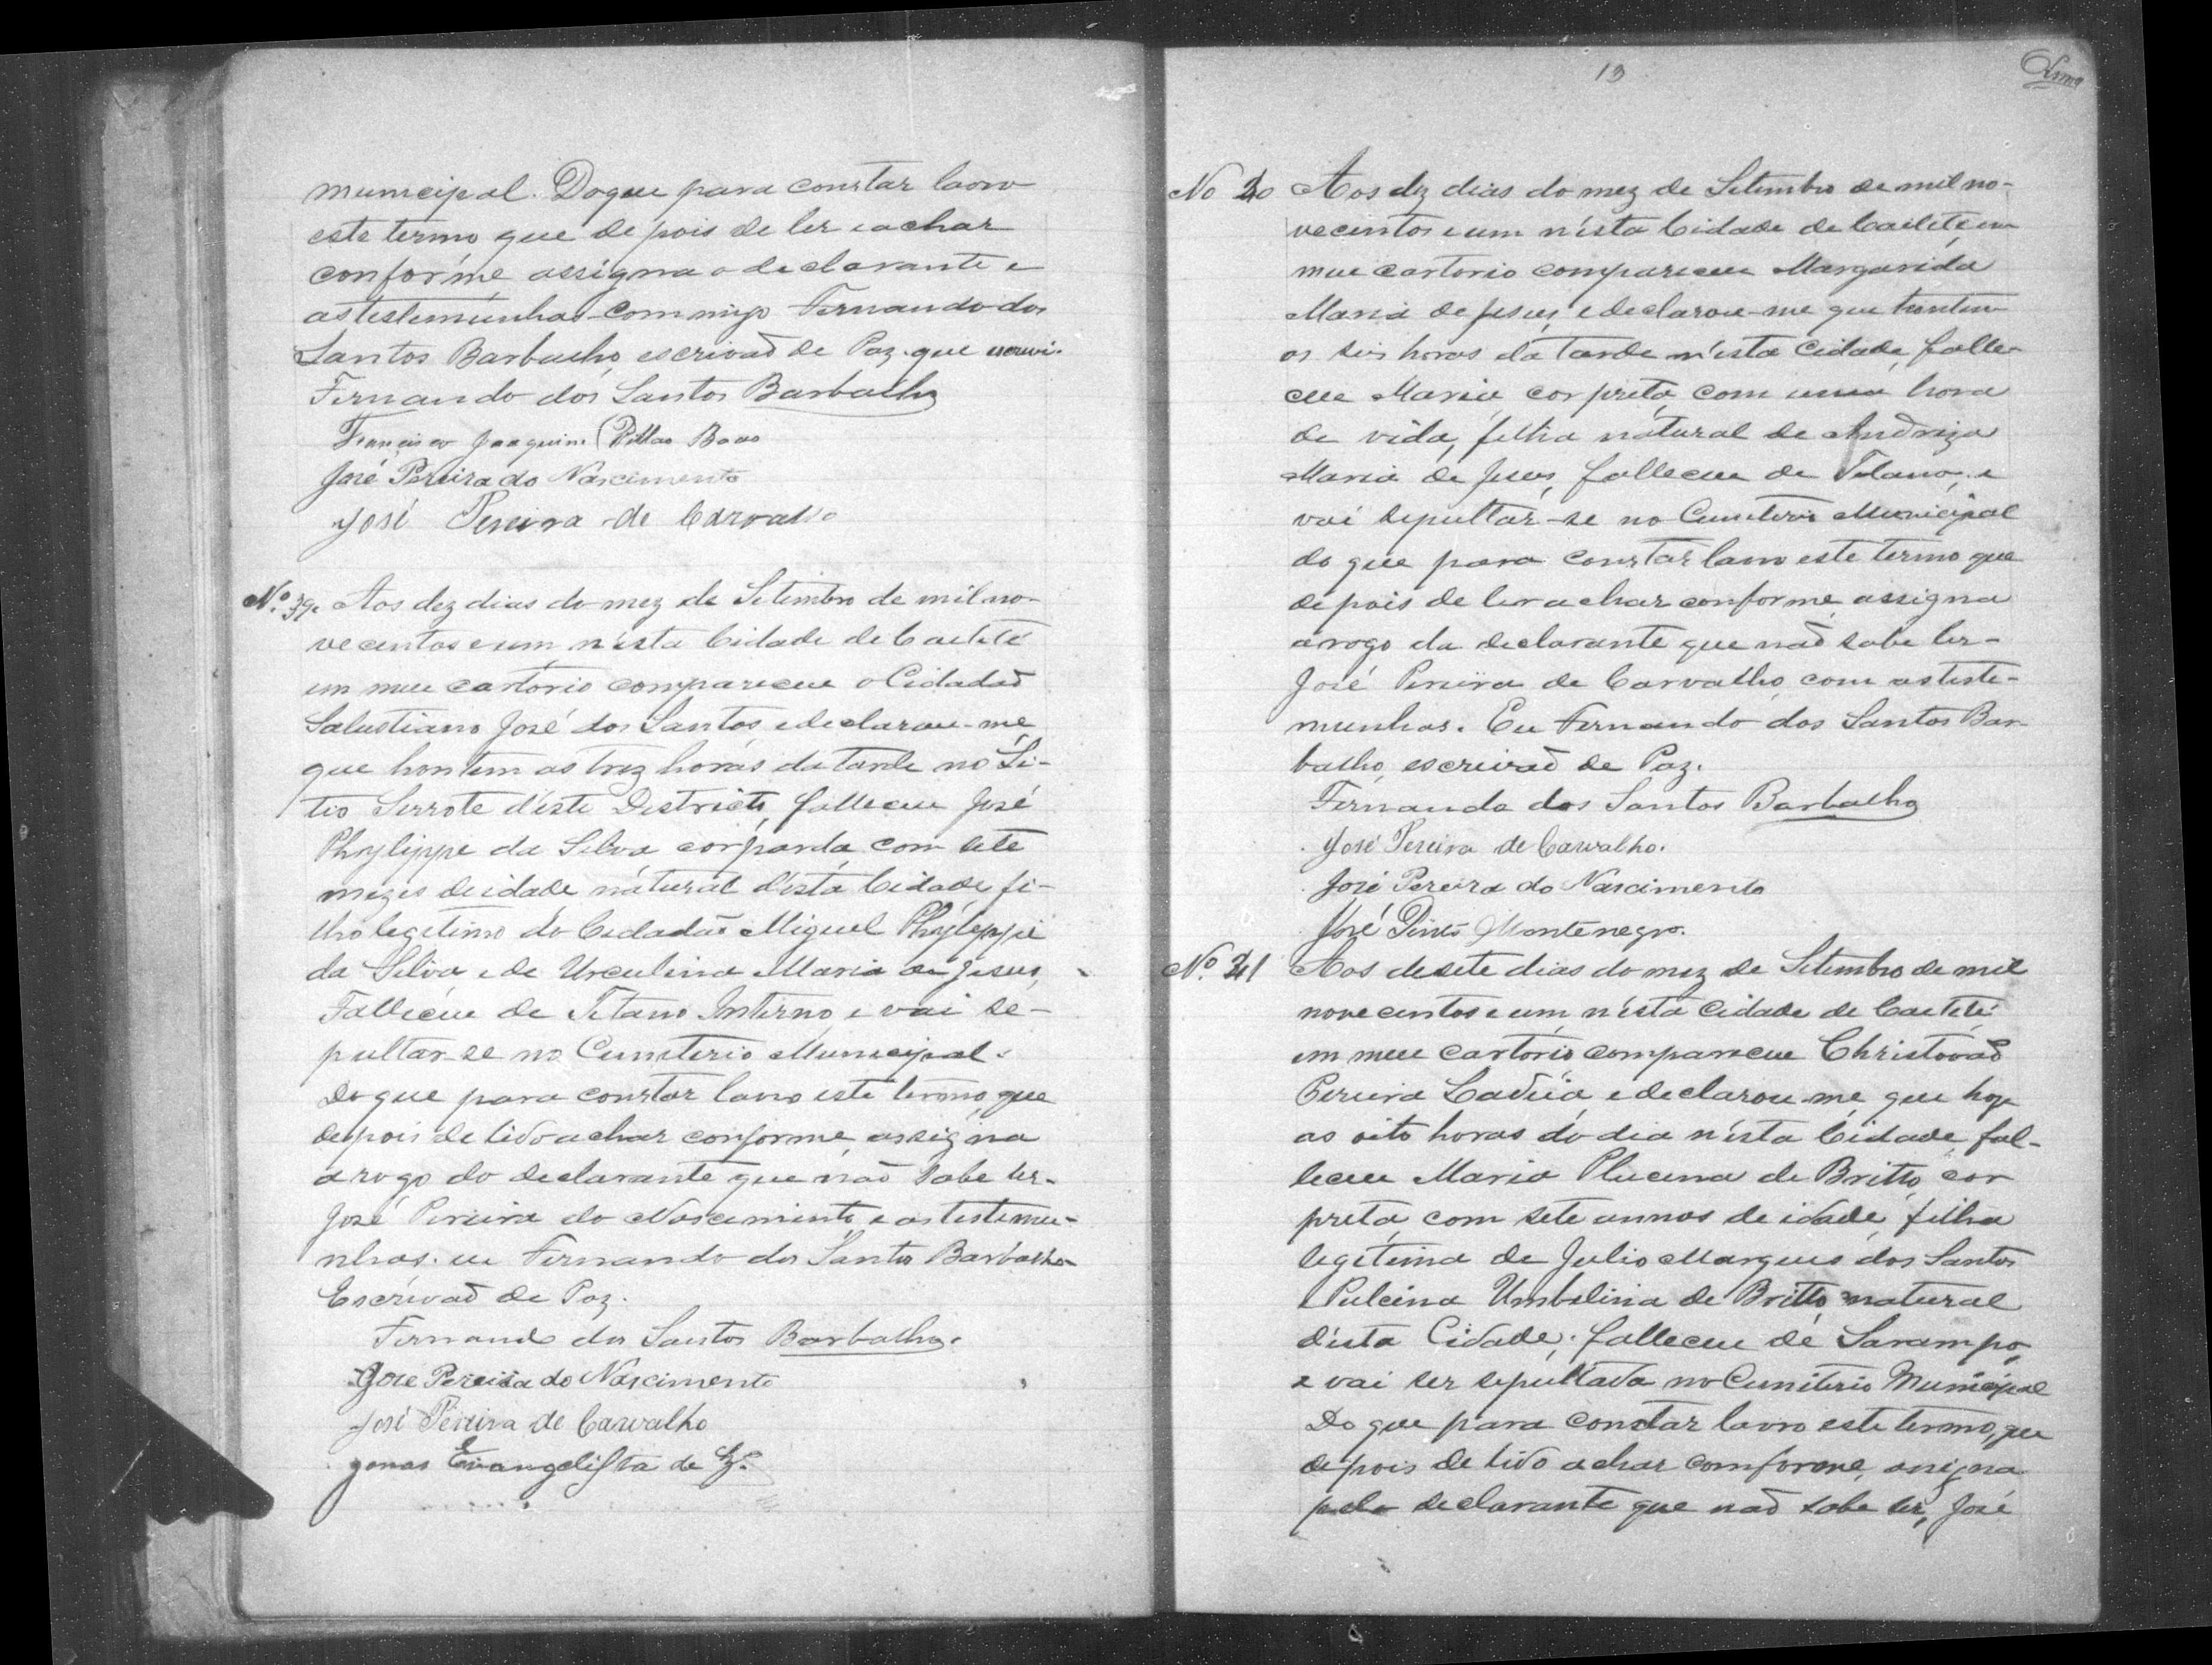 municipal. Do que para constar lavro
este termo que depois de ler e achar
conforme assigna o declarante e
as testemunhas commigo Fernando dos
Santos Barbalho, escrivaõ de Paz que escrevi.
Fernando dos Santos Barbalho
Francisco Joaquim Villas Boas
José Pereira do Nascimento
José Pereira de Carvalho
Nº 39. Aos dez dias do mez de Setembro de mil no-
vecentos e um, n'esta Cidade de Caeteté
em meu cartorio compareceu o Cidadaõ
Salustiano José dos Santos e declarou-me
que hontem as trez horas da tarde no Si-
tio Serrote d'este Districto, falleceu José
Phylippe da Silva cor parda, com sete
mezes de idade natural d'esta Cidade, fi-
lho legitimo do Cidadaõ Miguel Phylippe
da Silva e de Urculina Maria de Jesus,
Falleceu de Tetano Interno, e vai se-
pultar-se no Cemiterio Municipal.
Do que para constar lavro este termo, que
depois de lido e achar conforme, assigna
a rogo do declarante que naõ sabe ler-
José Pereira do Nascimento, e as testemu-
nhas. eu Fernando dos Santos Barbalho
Escrivaõ de Paz.
Fernando dos Santos Barbalho.
José Pereira do Nascimento
José Pereira de Carvalho
Jonas Evangelista de
13
No 40 Aos dez dias do mez de Setembro de mil no-
vecentos e um n'esta Cidade de Caeteté, em
meu cartorio compareceu Margarida
Maria de Jesus, e declarou-me que hontem
as seis horas da tarde n'esta Cidade, falle-
ceu Maria cor preta, com uma hora
de vida, filha natural de
Maria de Jesus, falleceu de Tetano, e
vai sepultar-se no Cemiterio Municipal
do que para constar lavro este termo que
depois de ler e achar conforme, assigna
a rogo da declarante que naõ sabe ler-
José Pereira de Carvalho, com as teste-
munhas. Eu Fernando dos Santos Bar-
balho, escrivaõ de Paz.
Fernando dos Santos Barbalho
José Pereira de Carvalho.
José Pereira do Nascimento
José Pires Montenegro.
Nº 41 Aos desete dias do mez de Setembro de mil
novecentos e um, n'esta Cidade de Caeteté
em meu cartorio compareceu Christovaõ
Pereira e declarou-me que hoje
as oito horas do dia n'esta Cidade fal-
leceu Maria de Britto, cor
preta, com sete annos de idade, filha
legitima de Julio Marques dos Santos
e Pulcina Umbelina de Britto natural
d'esta Cidade; falleceu de Sarampo,
e vai ser sepultada no Cemiterio Municipal
Do que para constar lavro este termo, que
depois de lido e achar comforme, assigna
pelo declarante que naõ sabe ler, José